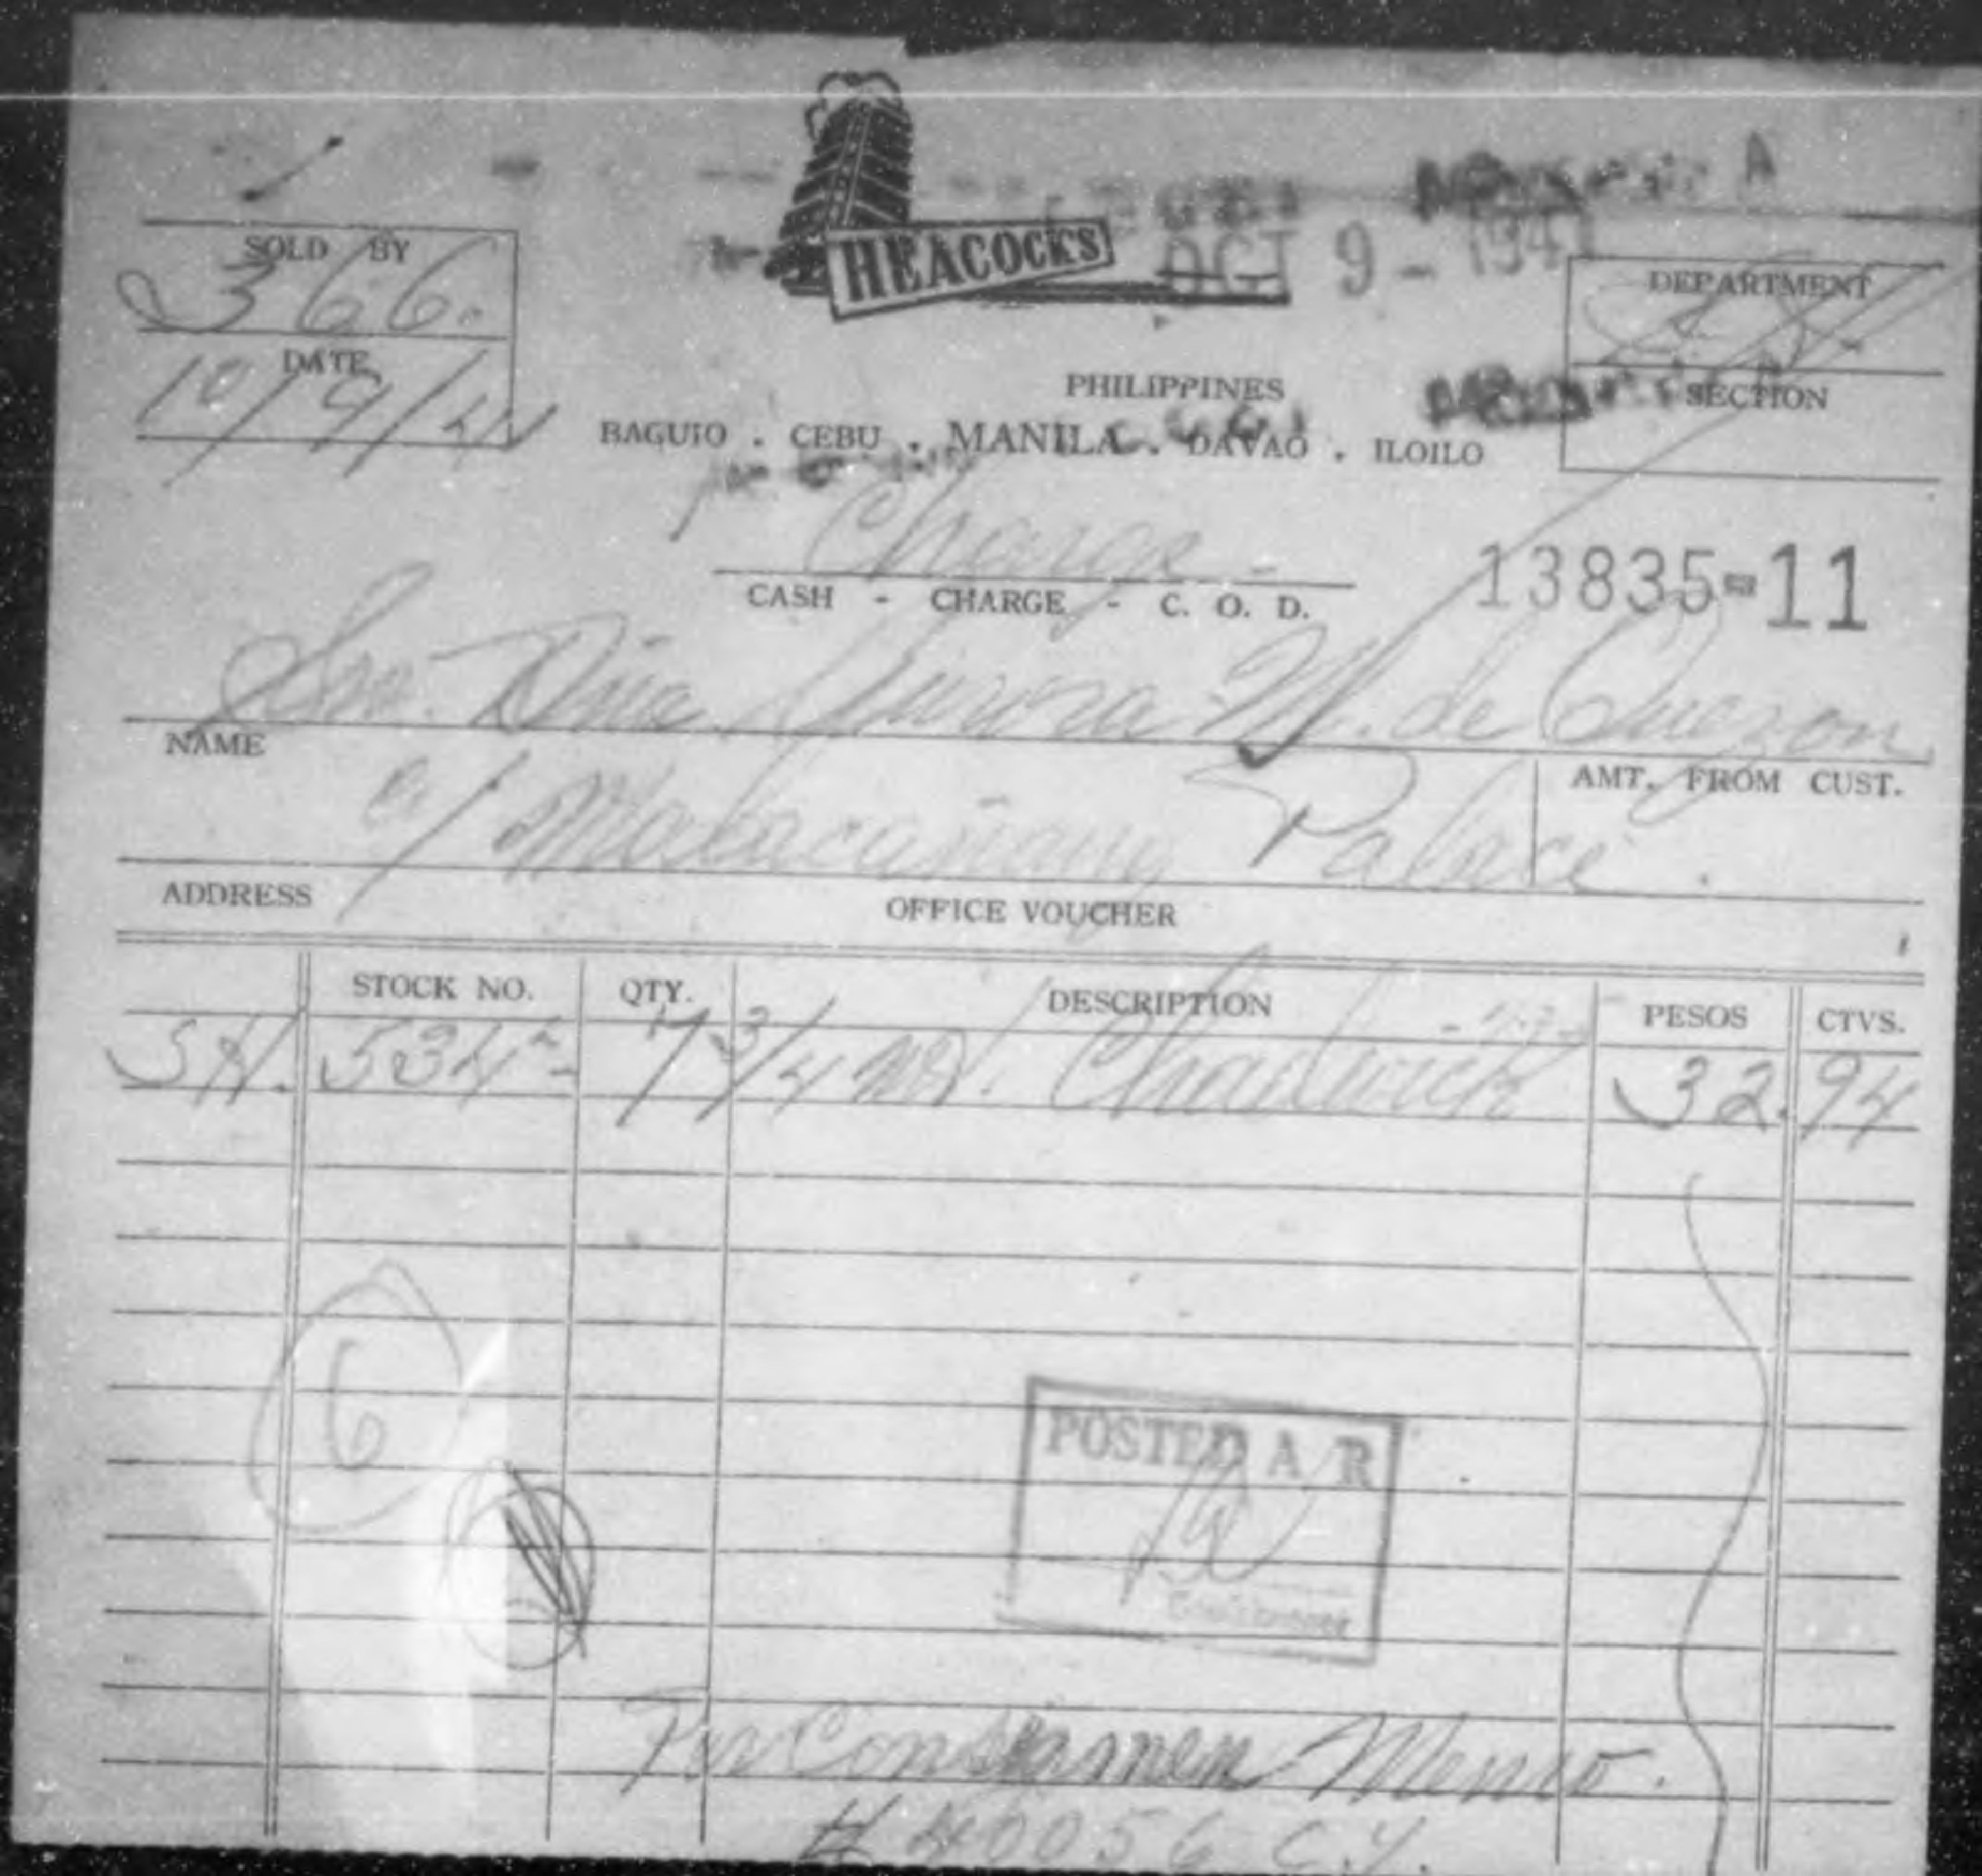 HEACOCKS
OCT 9 - 1941
SOLD BY
366.
DATE
10/9/41
DEPARTMENT
SECTION
PHILIPPINES
BAGUIO . CEBU . MANILA . DAVAO . ILOILO
Charge -
CASH - CHARGE - C. O. D.
13835-11
Sra. Dña. Aurora M. de Quezon
NAME
AMT. FROM CUST.
c/ Malacañang Palace.
ADDRESS
OFFICE VOUCHER
STOCK NO. QTY. DESCRIPTION PESOS CTVS.
SH. 534 - 7 3/4 Chadwick 32.94
6
POSTED A/R
Per Memo.
# 40056 C.Y.